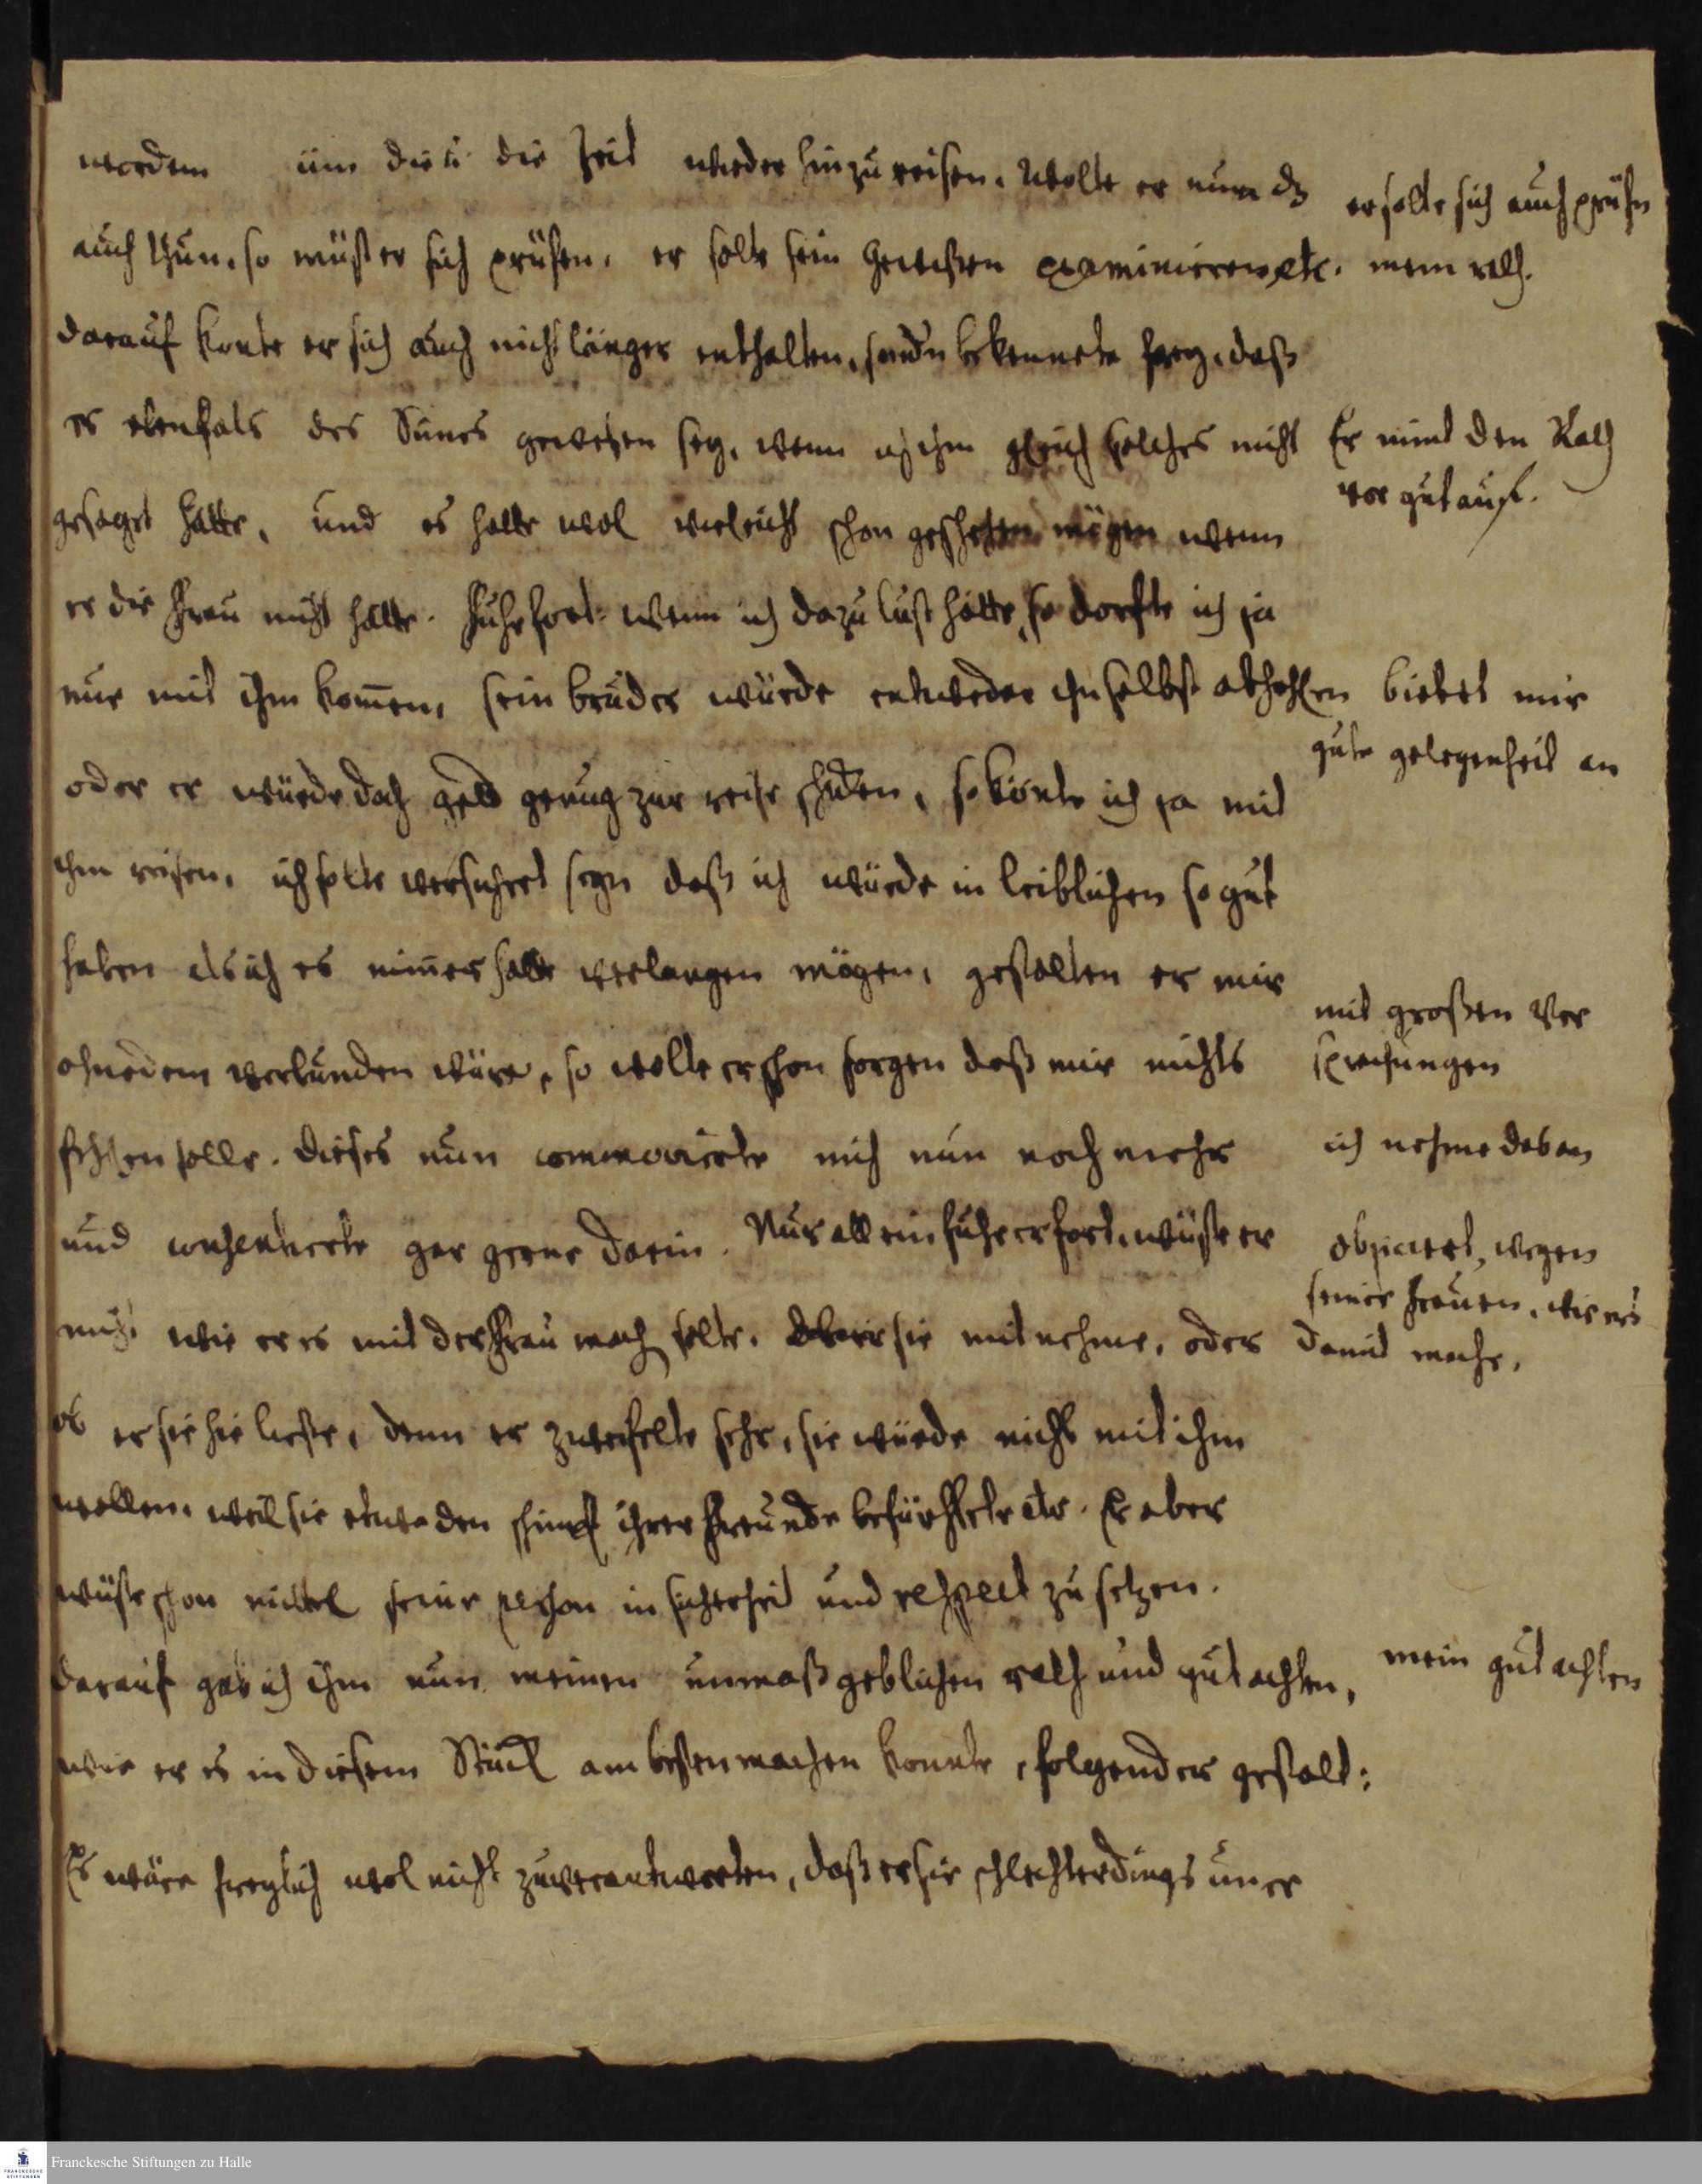 worden üm die u. die Zeit wieder hinzureisen. Wolte er nun dz
auch thun, so müst er sich prüfen, er solte sein Gewißen examinieren, etc.
darauf konte er sich auch nicht länger enthalten, sondn bekennete frey, daß
er ebenfals des Sines gewesen sey, wenn ich ihm gleich solches nicht
gesaget hätte, und es hätte wol vieleicht schon geschehen mögen wenn
er die Frau nicht hätte. Fuhr fort: wenn ich dazu lust hätte, so dorfte ich ja
nur mit ihm kom̄en, sein bruder würde entweder ihn selbst abhohlen
oder er würde doch geld genug zur reise schicken, so könte ich ja mit
ihm reisen, ich solte versichert seyn daß ich würde in leiblichen so gut
haben als ich es nim̄er hätte verlangen mögen, gestalten er mir
ohnedem verbunden wäre, so wolte er schon sorgen daß mir nichts
fehlen solle. Dieses nun commovierte mich nun noch mehr
und consentierte gar gerne darin. Nur allein fuhr er fort, wüste er
nicht wie er es mit der Frau mach solte. Ob er sie mit nehme, oder
ob er sie hie ließe, denn er zweifelte sehr, sie würde nicht mit ihm
wollen, weil sie etwa den schimpf ihrer Freunde befürchtete etc. Er aber
wüste schon mittel seine person in sicherheit und respect zu setzen.
darauf gab ich ihm nun meinen unmaßgeblichen rath und gutachten,
wie er es in diesem Stück am besten machen konnte, folgender gestalt:
Es wäre freylich wol nicht zuverantworten, daß er sie schlechterdings
er solte sich auch prüfn
mein rath.
Er nimt den Rath
vor gut auf.
bietet mir
gute gelegenheit an
mit großen Ver
sprechungen
ich nehme das an
objiciert, wegen
seiner Frauen, wie ers
damit mache,
mein gutachten
Franckesche Stiftungen zu Halle